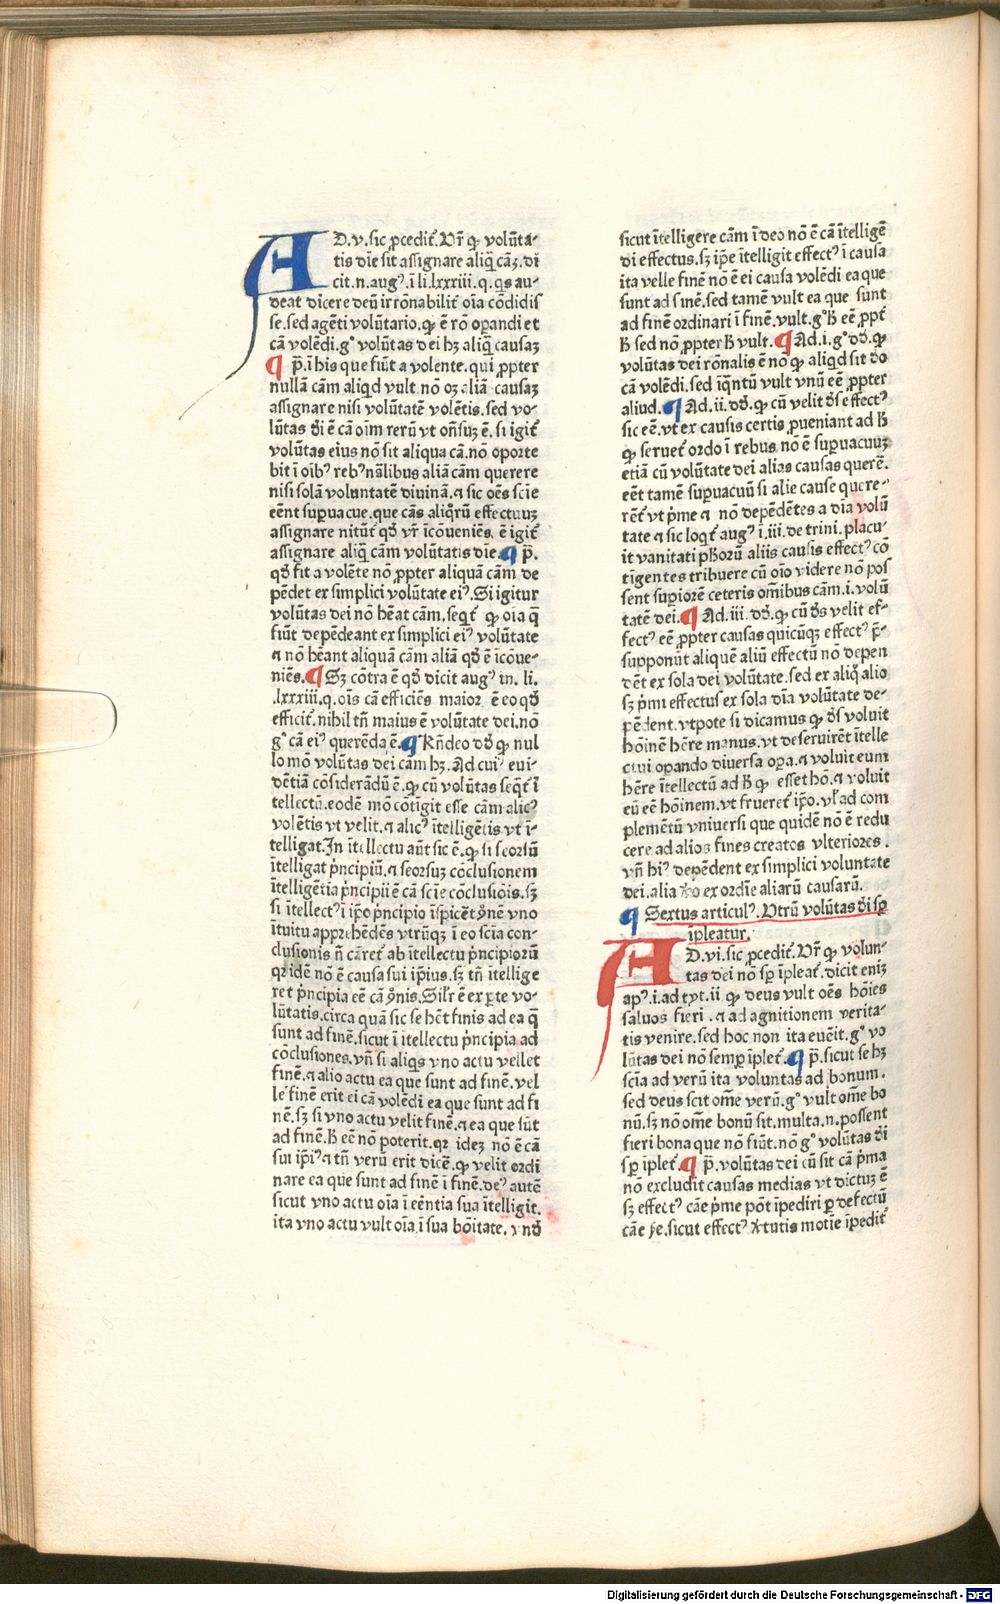 AD.v.sic ꝓcedit᷒.Vr̄ ꝙ volūta-
tis dīe sit assignare aliq̄ cāꝫ.di
cit.n.augꝰ.ī li.lxxxiii.q.qͥs au-
deat dicere deū irrōnabilit᷒ oīa cōdidis
se.sed agēti volūtario.ꝙ ē rō oꝑandi et
cā volēdi.gͦ volūtas dei hꝫ aliq̄ causaꝫ
¶ p̄.ī his que fiūt a volente.qui ꝓpter
nullā cām aliqͥd vult.nō oꝫ aliā causaꝫ
assignare nisi volūtatē volētis.sed vo-
lūtas dī ē cā oīm rerū vt on̄suꝫ ē.si igit᷒
volūtas eius nō sit aliqua cā.nō oporte
bit ī oībꝰ rebꝰ nālibus aliā cām querere
nisi solā voluntatē diuinā.⁊ sic oēs scīe
eēnt suꝑuacue.que cās aliqͦrū effectuuꝫ
assignare nitūt᷒ qd̓ vr̄ īcōueniēs.ē igit᷒
assignare aliq̄ cām volūtatis dīe.¶ p̄.
qd̓ fit a volēte nō ꝓpter aliquā cām de
pēdet ex simplici volūtate eiꝰ.Si igitur
volūtas dei nō hēat cām.seqͥt᷒ ꝙ oīa q̄
fiūt depēdeant ex simplici eiꝰ volūtate
⁊ nō hēant aliquā cām aliā qd̓ ē īcōue-
niēs.¶ Sꝫ cōtra ē qd̓ dicit augꝰ in. li.
.lxxxiii.q.oīs cā efficiēs maior ē eo qd̓
efficit᷒.nihil tn̄ maius ē volūtate dei.nō
gͦ cā eiꝰ querēda ē.¶ Rn̄deo dd̓ ꝙ nul
lo mō volūtas dei cām hꝫ.Ad cuiꝰ eui-
dētiā cōsiderādū ē.ꝙ cū volūtas seqͣt᷒ ī
tellectū.eodē mō cōtīgit esse cām alicꝰ
volētis vt velit.⁊ alicꝰ ītelligētis vt ī-
telligat.In ītellectu aūt sic ē.ꝙ si seorsū
ītelligat pͥncipiū.⁊ seorsuꝫ cōclusionem
ītelligētia pͥncipii ē cā scīe cōclusiōis.sꝫ
si ītellectꝰ ī ip̄o pͥncipio īspicēt ꝯnē vno
ītuitu apprehēdēs vtrūqꝫ ī eo scīa con-
clusionis n̄ cāret᷒ ab ītellectu pͥncipiorū
qꝛ idē nō ē causa sui ip̄ius.sꝫ tn̄ ītellige
ret pͥncipia eē cā ꝯnis.Silr̄ ē ex ꝑte vo-
lūtatis.circa quā sic se hēt finis ad ea q̄
sunt ad finē.sicut ī ītellectu pͥncipia ad
cōclusiones.vn̄ si aliqͥs vno actu vellet
finē.⁊ alio actu ea que sunt ad finē.vel
le finē erit ei cā volēdi ea que sunt ad fi
nē.sꝫ si vno actu velit finē.⁊ ea que sūt
ad finē.h̓ eē nō poterit.qꝛ ideꝫ nō ē cā
sui ip̄iꝰ ⁊ tn̄ verū erit dicē.ꝙ velit ordi
nare ea que sunt ad finē ī finē.deꝰ autē
sicut vno actu oīa ī eēntia sua ītelligit.
ita vno actu vult oīa ī sua bōitate.vnd̓
sicut ītelligere cām ī deo nō ē cā ītelligē
di effectus.sꝫ ip̄e ītelligit effectꝰ ī causa
ita velle finē nō ē ei causa volēdi ea que
sunt ad finē.sed tamē vult ea que sunt
ad finē ordinari ī finē.vult.gͦ h̓ eē ꝓpt᷒
h̓ sed nō ꝓpter h̓ vult.¶ Ad.i.gͦ dd̓.ꝙ
volūtas dei rōnalis ē nō ꝙ aliqͥd sit do
cā volēdi.sed īqͣntū vult vnū eē ꝓpter
aliud.¶ Ad.ii.dd̓.ꝙ cū velit ds̄ effectꝰ
sic eē.vt ex causis certis ꝓueniant ad h̓
ꝙ seruet᷒ ordo ī rebus nō ē suꝑuacuuꝫ
etiā cū volūtate dei alias causas querē.
eēt tamē suꝑuacuū si alie cause quere-
rēt᷒ vt pͥme ⁊ nō depēdētes a dīa volū
tate ⁊ sic loqͥt᷒ augꝰ ī.iii.de trini.placu-
it vanitati phōrū aliis causis effectꝰ cō
tīgentes tribuere cū oīo videre nō pos
sent suꝑiorē ceteris om̄ibus cām.i.volū
tatē dei.¶ Ad.iii.dd̓.ꝙ cū ds̄ velit ef-
fectꝰ eē ꝓpter causas quicūqꝫ effectꝰ p̄-
supponūt aliquē aliū effectū nō depen
dēt ex sola dei volūtate.sed ex aliqͦ alio
sꝫ pͥmi effectus ex sola dīa volūtate de-
pēdent.vtpote si dicamus ꝙ ds̄ voluit
hōinē hēre manus.vt deseruirēt ītelle
ctui oꝑando diuersa oꝑa.⁊ voluit eum
hēre ītellectū ad h̓ ꝙ esset hō.⁊ voluit
eū eē hōinem.vt frueret᷒ ip̄o.vl̓ ad com
plemētū vniuersi que quidē nō ē redu
cere ad alios fines creatos vlteriores.
vn̄ hiꝰ depēdent ex simplici voluntate
dei.alia ꝟo ex ordīe aliarū causarū.
¶ Sextus articulꝰ.Vtrū volūtas dī sꝑ
īpleatur.
AD.vi.sic ꝓcedit᷒.Vr̄ ꝙ volun-
tas dei nō sꝑ īpleat᷒.dicit eniꝫ
apꝰ.i.ad tyt.ii ꝙ deus vult oēs hōies
saluos fieri.⁊ ad agnitionem verita-
tis venire.sed hoc non ita euēit.gͦ vo
lūtas dei nō semꝑ iplet᷒.¶ p̄.sicut se hꝫ
scīa ad verū ita voluntas ad bonum.
sed deus scit om̄e verū.gͦ vult om̄e bo
nū.sꝫ nō om̄e bonū sit.multa.n.possent
fieri bona que nō fiūt.nō gͦ volūtas dī
sꝑ iplet᷒.¶ p̄.voluntas dei cū sit cā pͥma
nō excludit causas medias vt dictuꝫ ē
sꝫ effectꝰ cāe pͥme pōt īpediri ꝑ defectū
cāe ẜe.sicut effectꝰ ꝟtutis motīe īpedit᷒
Digitalisierung gefördert durch die Deutsche Forschungsgemeinschaft - DFG